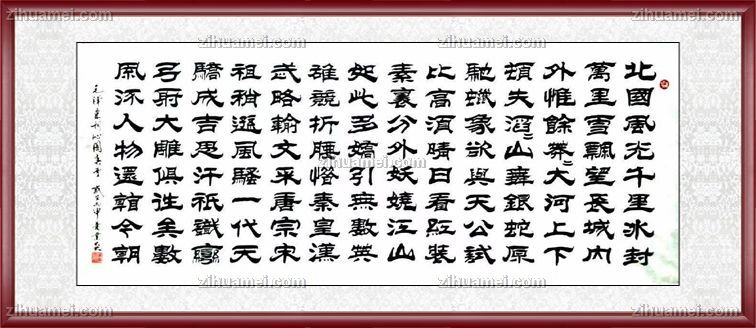 北國風光千里冰封
萬里雪飄望長城內
外惟餘莽〻大河上下
頓失滔〻山舞銀蛇原
馳蠟象欲與天公試
比高須晴日看紅裝
素裹分外妖嬈江山
如此多嬌引無數英
雄競折腰惜秦皇漢
武略輸文采唐宗宋
祖稍遜風騷一代天
驕成吉思汗祇識彎
弓射大雕俱往矣數
風流人物還看今朝
毛澤東詞沁園春雪
zihuamei.com
zihuamei.com
zihuamei.com
zihuamei.com
zihuamei.com
zihuamei.com
zihuamei.com
zihuamei.com
zihuamei.com